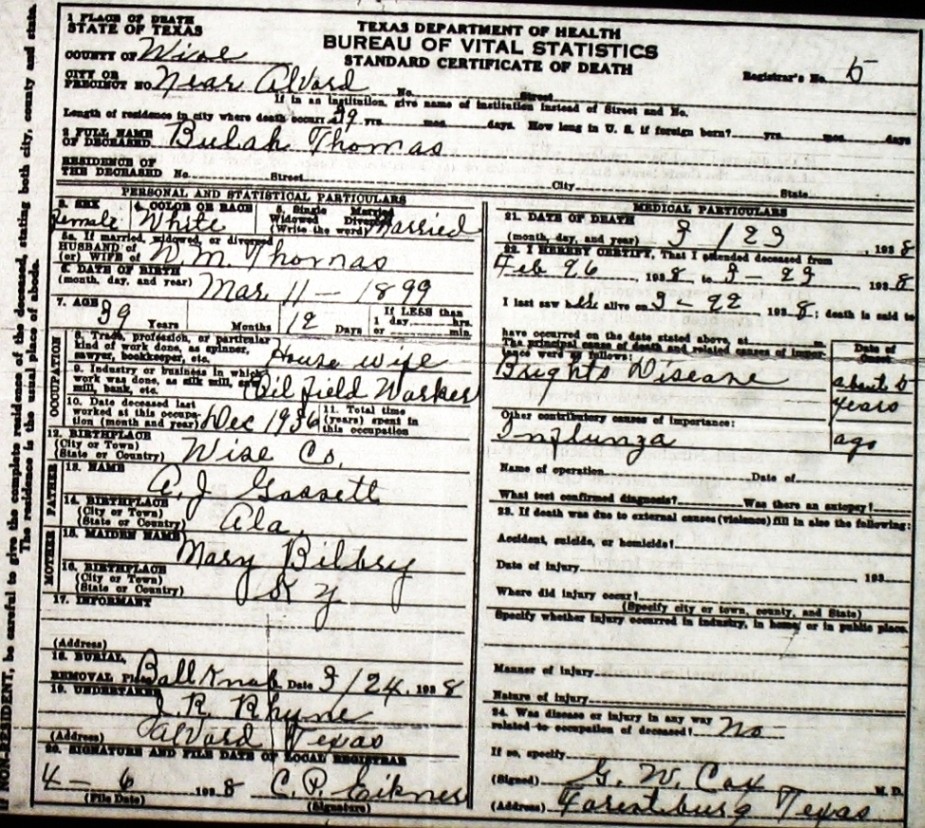 1 PLACE OF DEATH
STATE OF TEXAS
COUNTY OF Wise
CITY OR
PRECINCT NO. Near Alvord No. Street
TEXAS DEPARTMENT OF HEALTH
BUREAU OF VITAL STATISTICS
STANDARD CERTIFICATE OF DEATH
Registrar's No. 5
If in an institution, give name of institution instead of Street and No.
Length of residence in city where death occurr 39 yrs. mos. days. How long in U. S. if foreign born? yrs. mos. days
2 FULL NAME
OF DECEASED. Bulah Thomas
RESIDENCE OF
THE DECEASED No. Street City State
PERSONAL AND STATISTICAL PARTICULARS
3. SEX Female
4. COLOR OR RACE White
5. Single Married
Widowed Divorced
(Write the word) Married
5a. If married, widowed, or divorced
HUSBAND of
(or) WIFE of W. M. Thomas
6. DATE OF BIRTH
(month, day, and year) Mar 11 - 1899
7. AGE 39 Years Months 12 Days If LESS than
1 day, hrs.
or min.
OCCUPATION
8. Trade, profession, or particular
kind of work done, as spinner,
sawyer, bookkeeper, etc. House wife
9. Industry or business in which
work was done, as silk mill, saw
mill, bank, etc. Oil field Worker
10. Date deceased last
worked at this occupa-
tion (month and year) Dec 1936
11. Total time
(years) spent in
this occupation
12. BIRTHPLACE
(City or Town)
(State or Country) Wise Co.
FATHER
13. NAME A. J. Gossett
14. BIRTHPLACE
(City or Town)
(State or Country) Ala
MOTHER
15. MAIDEN NAME Mary Bilbry
16. BIRTHPLACE
(City or Town)
(State or Country) Ky
17. INFORMANT
(Address)
18. BURIAL,
REMOVAL Place Ball Knab Date 3/24, 1938
19. UNDERTAKER J. R. Rhyne
(Address) Alvord Texas
20. SIGNATURE AND FILE DATE OF LOCAL REGISTRAR
4 - 6 1938
(File Date)
(Signature)
MEDICAL PARTICULARS
21. DATE OF DEATH
(month, day, and year) 3 / 23, 1938
22. I HEREBY CERTIFY, That I attended deceased from
Feb 26 1938 to 3 - 23 1938
I last saw her alive on 3 - 22 1938; death is said to
have occurred on the date stated above, at m.
The principal cause of death and related causes of impor-
tance were as follows:
Brights Disease
Date of
Onset
about 5
years
ago
Other contributory causes of importance:
Influnza
Name of operation Date of
What test confirmed diagnosis? Was there an autopsy?
23. If death was due to external causes (violence) fill in also the following:
Accident, suicide, or homicide?
Date of injury , 193
Where did injury occur?
(Specify city or town, county, and State)
Specify whether injury occurred in industry, in home, or in public place.
Manner of injury
Nature of injury
24. Was disease or injury in any way
related to occupation of deceased? no
If so, specify
(Signed) G. W. Cox M. D.
(Address) Texas
IF NON-RESIDENT, be careful to give the complete residence of the deceased, stating both city, county and state.
The residence is the usual place of abode.